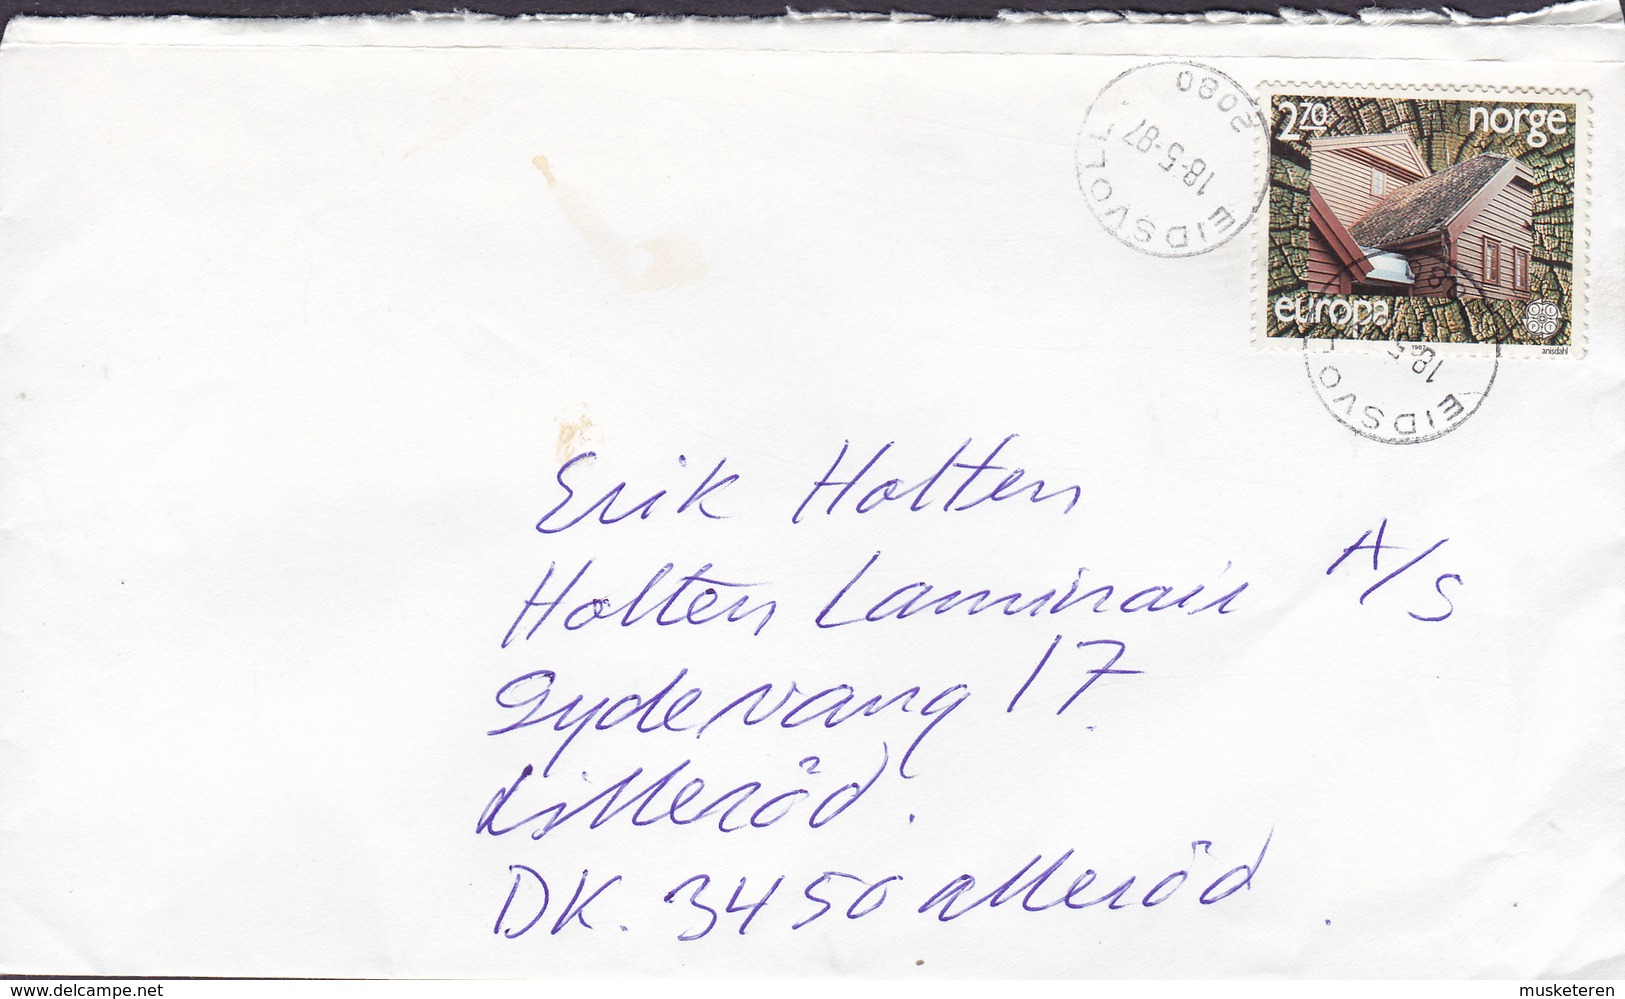 2080
18-5-87
EIDSVOLL
2 70
norge
europa
1987
anisdahl
18-5
EIDSVO
Erik Holten
Holten Laminair A/S
Gydevang 17.
Lilleröd.
DK. 3450 alleröd.
www.delcampe.net
musketeren